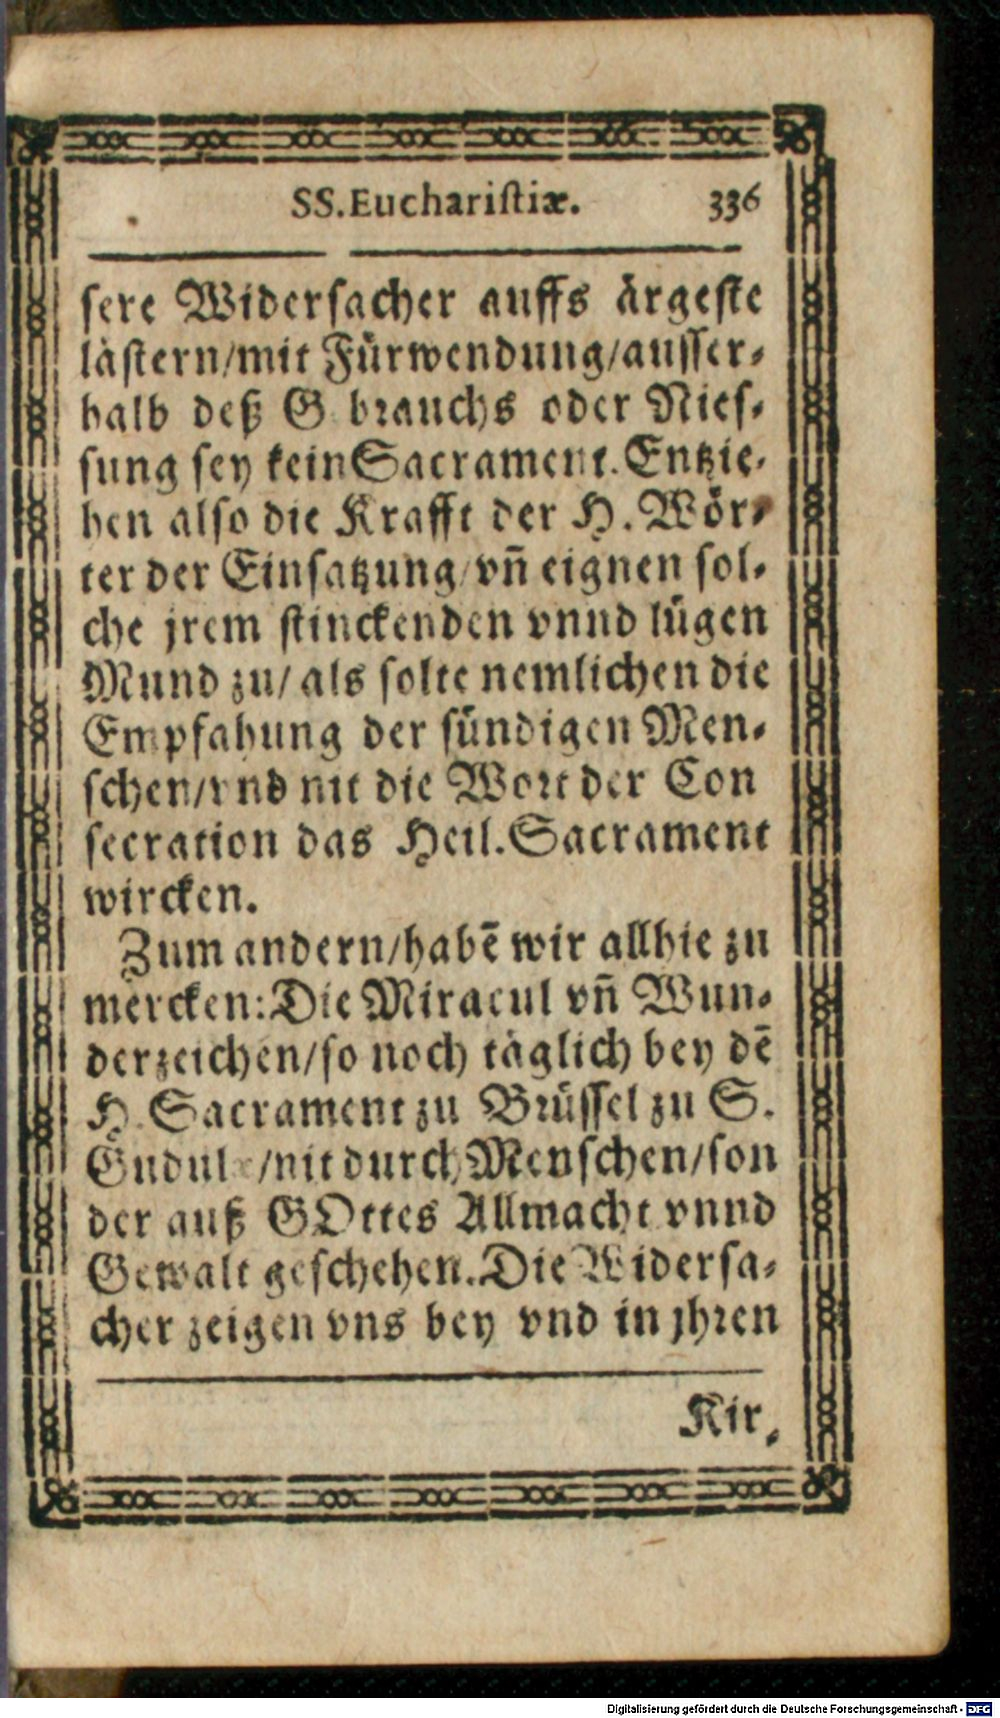 SS. Euchariſtiæ. 336
ſere Widerſacher auffs ärgeſte
läſtern/mit Fürwendung/auſſer-
halb deß G brauchs oder Nieſ-
ſung ſey kein Sacrament. Entzie-
hen alſo die Krafft der H. Wör-
ter der Einſatzung/vñ eignen ſol-
che jrem ſtinckenden vnnd lügen
Mund zu/als ſolte nemlichen die
Empfahung der ſündigen Men-
ſchen/vnd nit die Wort der Con
ſecration das Heil. Sacrament
wircken.
Zum andern/habē wir allhie zu
mercken: Die Miracul vñ Wun-
derzeichen/ſo noch täglich bey dē
H. Sacrament zu Brüſſel zu S.
Gudulæ/nit durch Menſchen/ſon
der auß GOttes Allmacht vnnd
Gewalt geſchehen. Die Widerſa-
cher zeigen vns bey vnd in jhren
Kir-
Digitalisierung gefördert durch die Deutsche Forschungsgemeinschaft - DFG